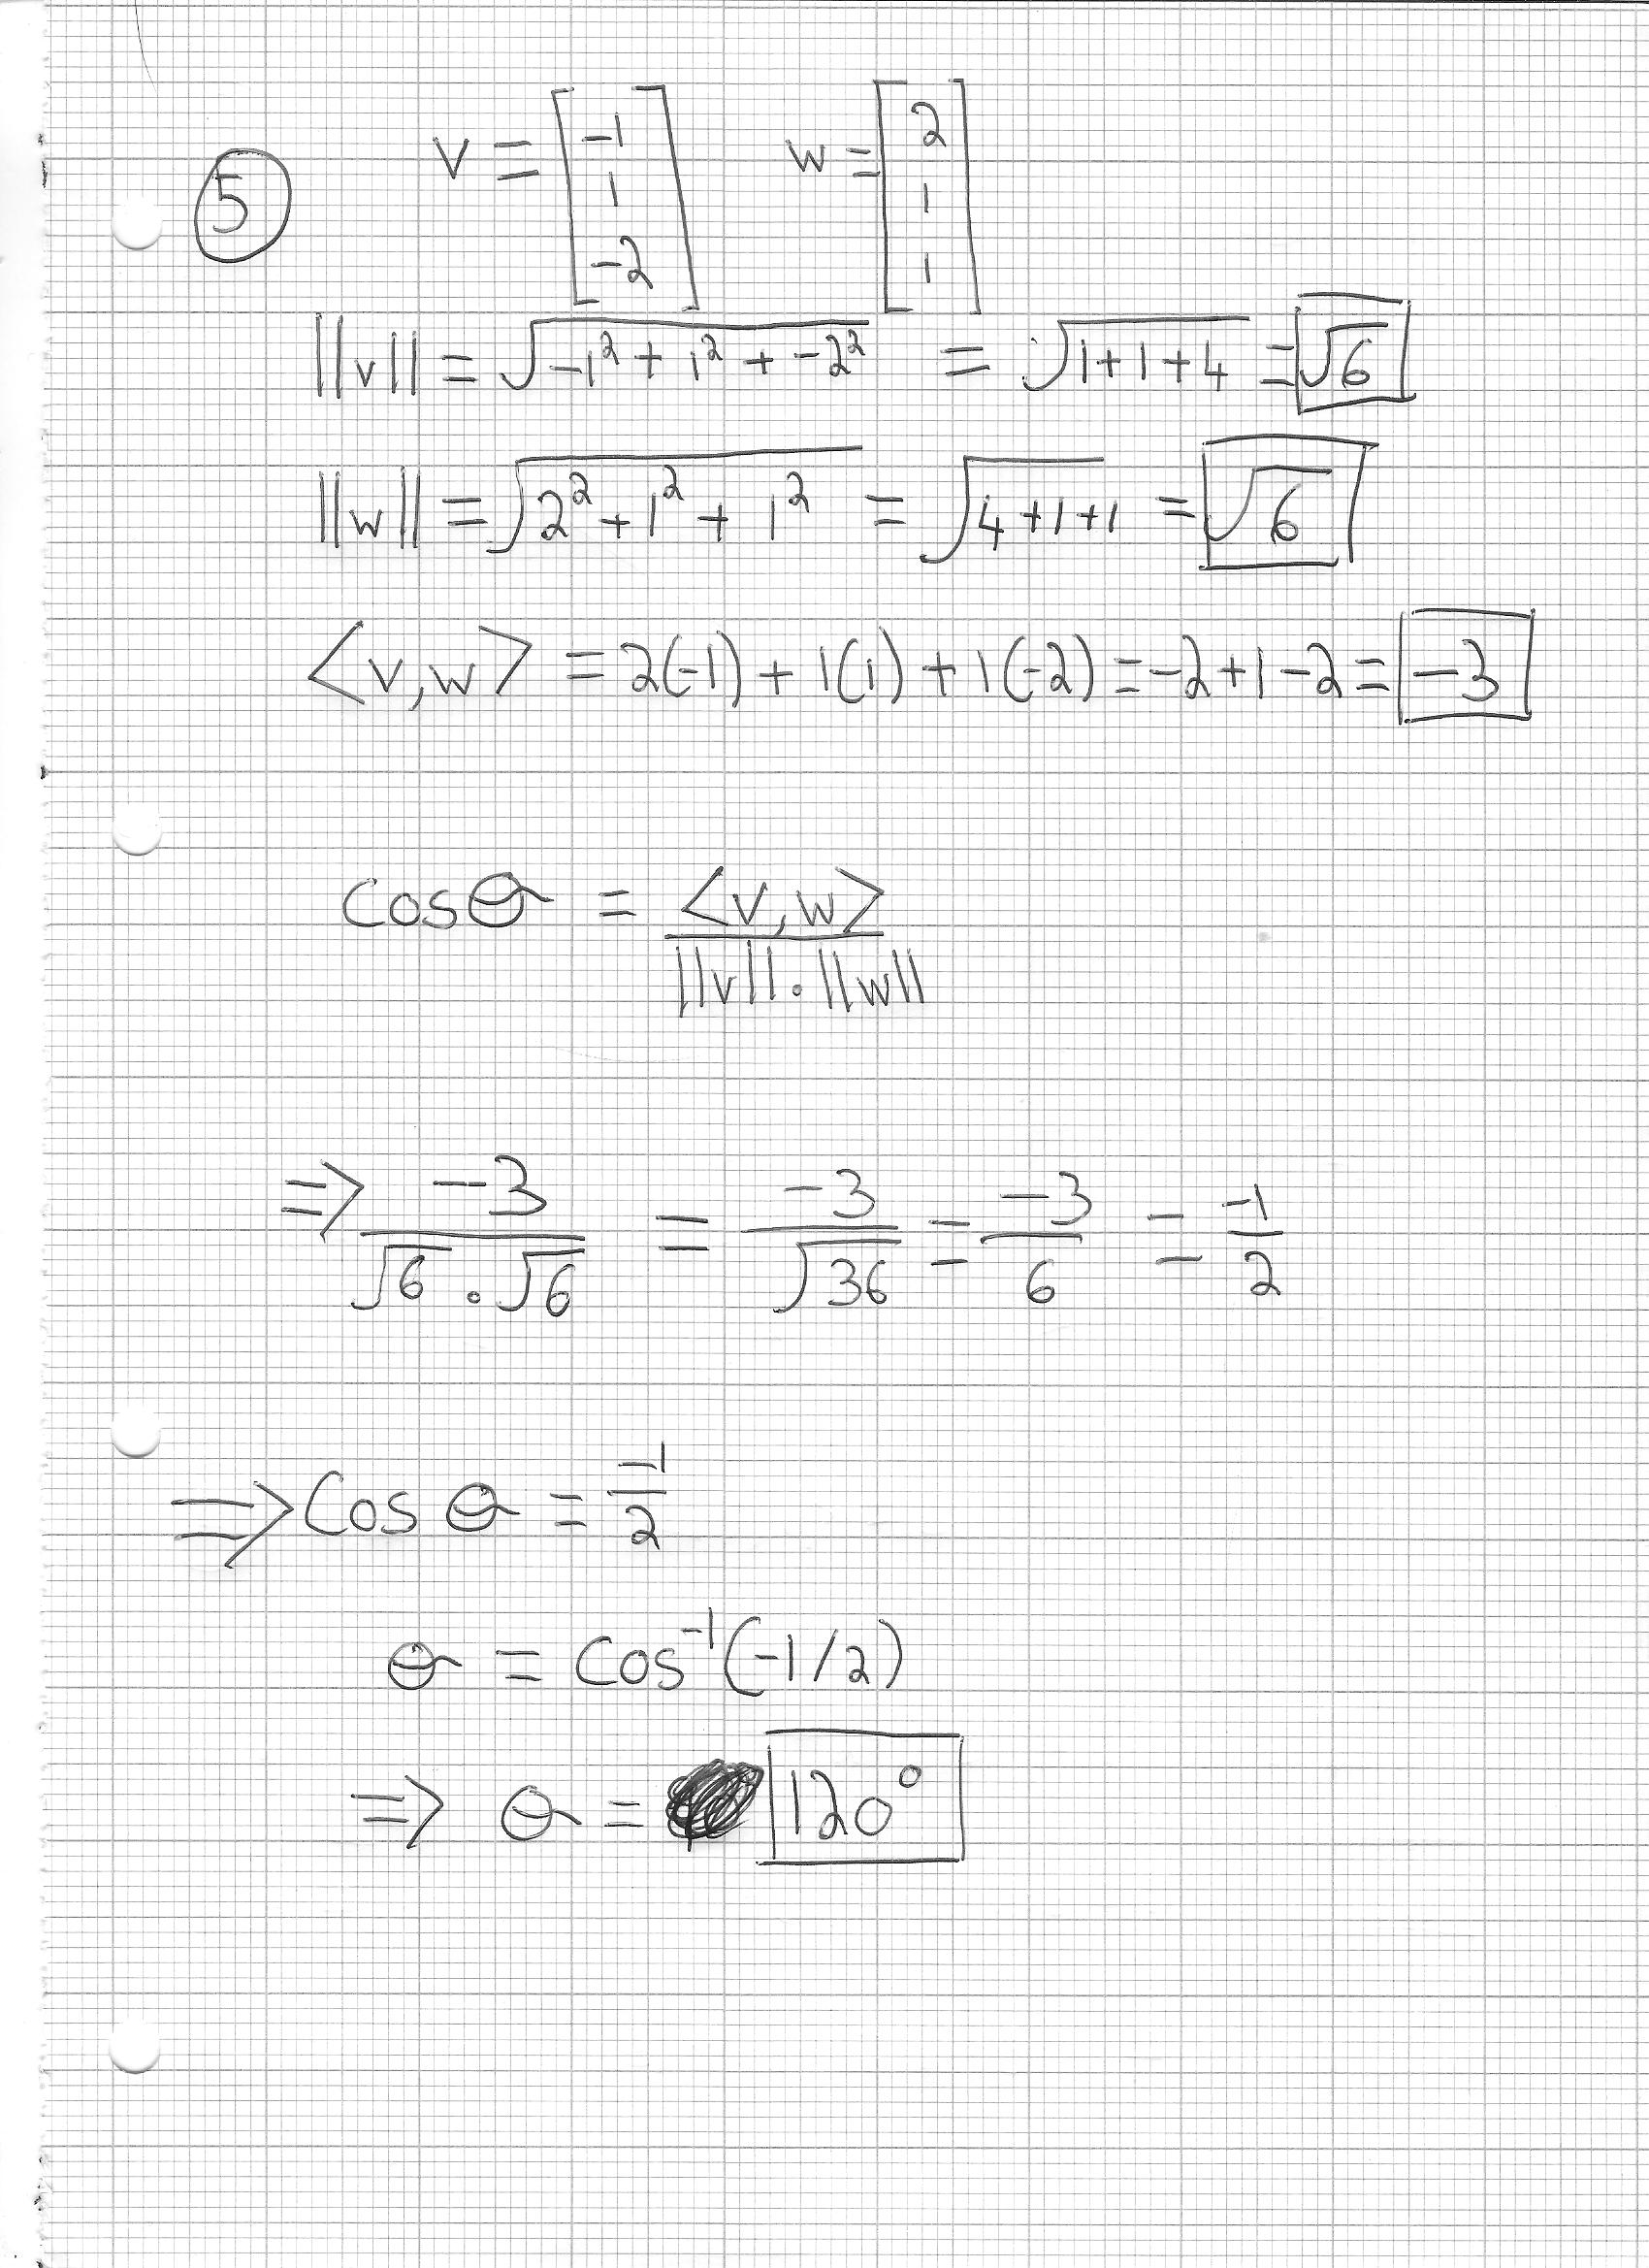 5
v = [-1 1 -2] w = [2 1 1]
||v|| = √(-1² + 1² + -2²) = √(1+1+4) = √6
||w|| = √(2² + 1² + 1²) = √(4+1+1) = √6
<v,w> = 2(-1) + 1(1) + 1(-2) = -2+1-2 = -3
cosθ = <v,w> / ||v||·||w||
=> -3 / √6·√6 = -3/√36 = -3/6 = -1/2
=> Cos θ = -1/2
θ = Cos⁻¹(-1/2)
=> θ = 120°